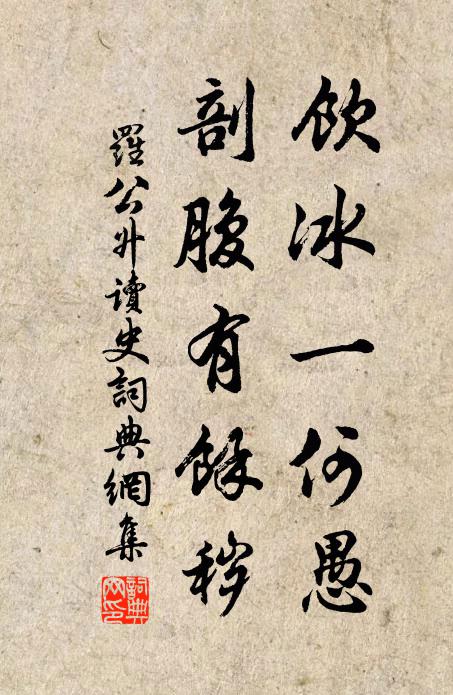 飲冰一何愚
剖腹有餘穢
羅公升讀史詞典網集
詞典
网印